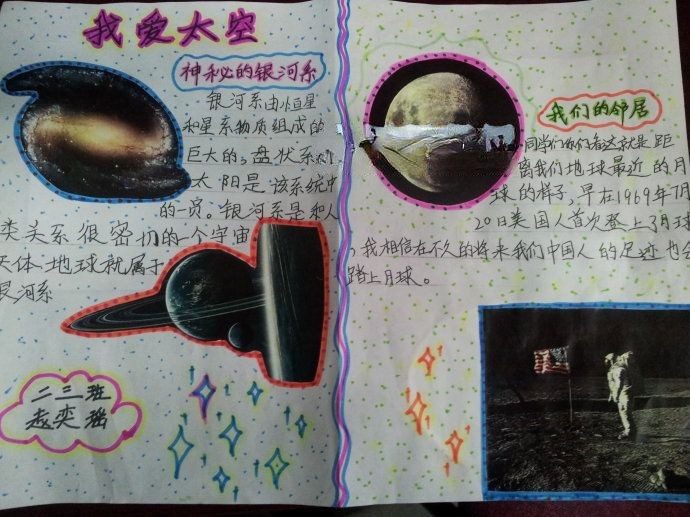 我爱太空
神秘的银河系
银河系由恒星
和星系物质组成的
巨大的，盘状系
太阳是该系统中
的一员。银河系是和人
类关系很密切的一个宇宙
天体、地球就属于
银河系
二三班
赵奕瑶
我们的邻居
同学们你们看这就是距
离我们地球最近的月
球的样子，早在1969年7月
20日美国人首次登上了月球
，我相信在不久的将来我们中国人的足迹也会
踏上月球。